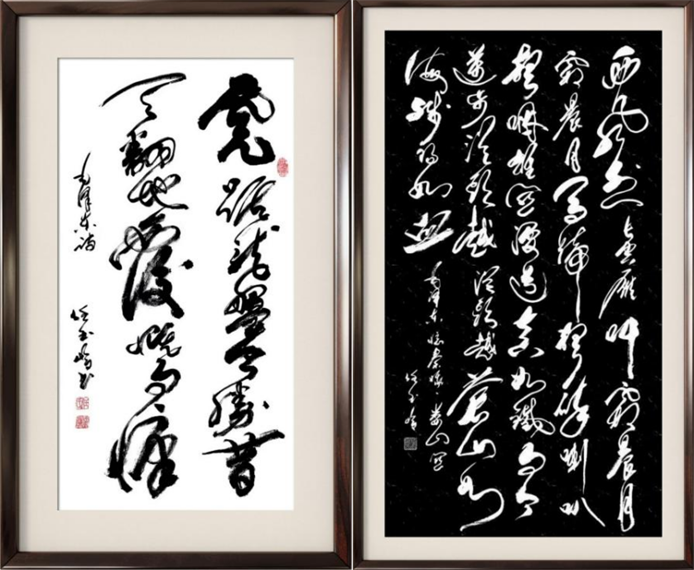 虎踞龙盘今胜昔
天翻地覆慨而慷
毛泽东诗 任玉岭书
西风烈长空雁叫霜晨月
霜晨月马蹄声碎喇叭
声咽雄关漫道真如铁而今
迈步从头越从头越苍山如
海残阳如血
毛泽东忆秦娥·娄山关 任玉岭